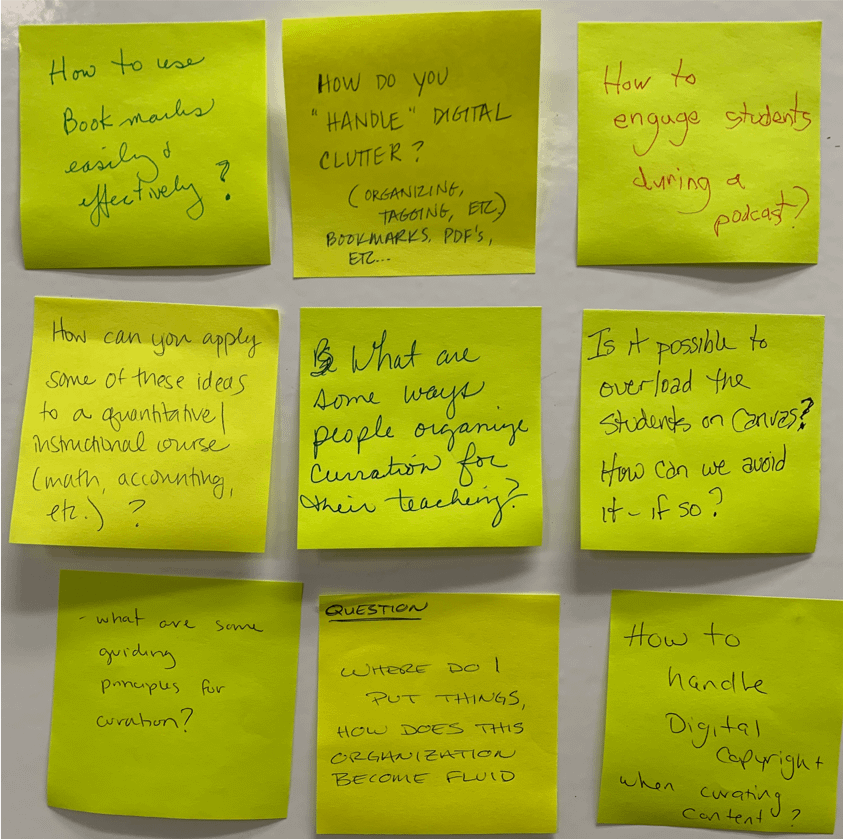 How to use
Bookmarks
easily &
effectively?
HOW DO YOU
"HANDLE" DIGITAL
CLUTTER?
(ORGANIZING,
TAGGING, ETC.)
BOOKMARKS, PDF'S,
ETC...
How to
engage students
during a
podcast?
How can you apply
some of these ideas
to a quantitative/
instructional course
(math, accounting,
etc.) ?
What are
some ways
people organize
curration for
their teaching?
Is it possible to
overload the
students on Canvas?
How can we avoid
it - if so?
- what are some
guiding
principles for
curation?
QUESTION
WHERE DO I
PUT THINGS,
HOW DOES THIS
ORGANIZATION
BECOME FLUID
How to
handle
Digital
Copyright
when curating
content?